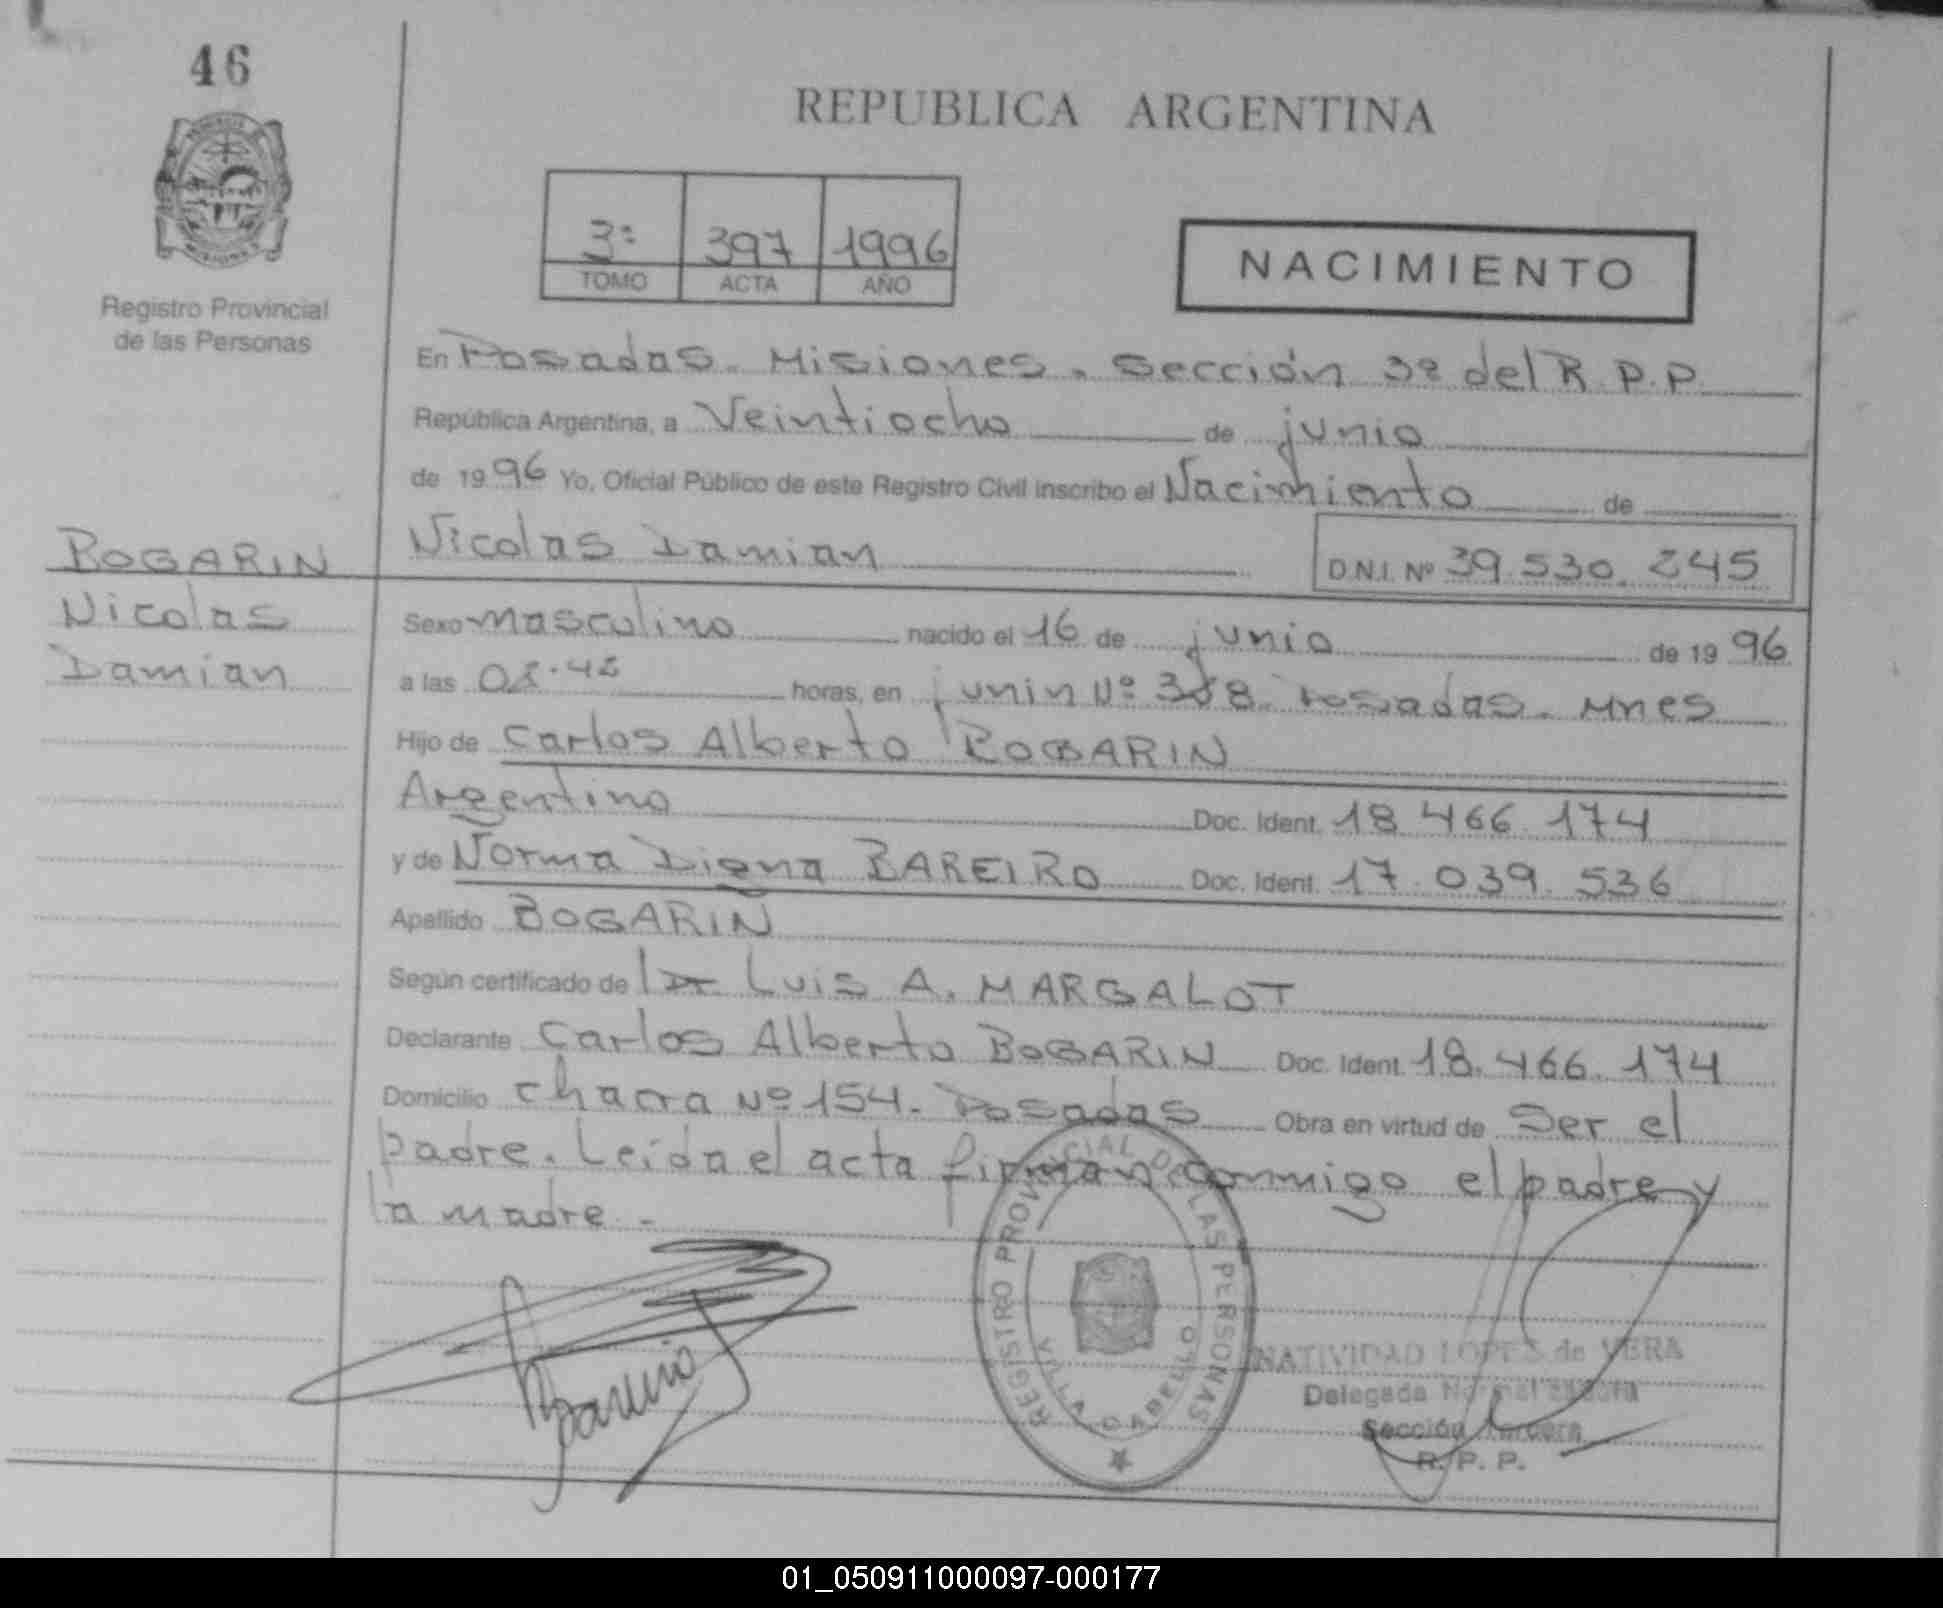 46
REPUBLICA ARGENTINA
3º 397 1996
TOMO ACTA AÑO
NACIMIENTO
Registro Provincial
de las Personas
En Posadas. Misiones. Sección 3º del R.P.P.
República Argentina, a Veintiocho de junio
de 1996 Yo, Oficial Público de este Registro Civil inscribo el Nacimiento de
BOGARIN
Nicolas
Damian
Nicolas Damian
D.N.I. Nº 39.530.245
Sexo masculino nacido el 16 de junio de 1996
a las horas, en junin Nº Posadas. Mnes
Hijo de Carlos Alberto BOGARIN
Argentino Doc. Ident. 18.466.174
y de Norma Digna BAREIRO Doc. Ident. 17.039.536
Apellido BOGARIN
Según certificado de Dr. Luis A. MARGALOT
Declarante Carlos Alberto BOGARIN Doc. Ident. 18.466.174
Domicilio Chacra Nº 154. Posadas Obra en virtud de Ser el
padre. Leida el acta firman conmigo el padre y
la madre.-
REGISTRO PROVINCIAL DE LAS PERSONAS
VILLA CABELLO
NATIVIDAD LOPES de VERA
Delegada
Sección Tercera
R. P. P.
01_050911000097-000177